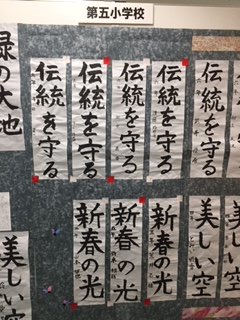 第五小学校
緑の大地
伝統を守る
伝統を守る
伝統を守る
伝統を守る
伝統を守る
伝統を守る
美しい空
新春の光
新春の光
新春の光
美しい空
美しい空